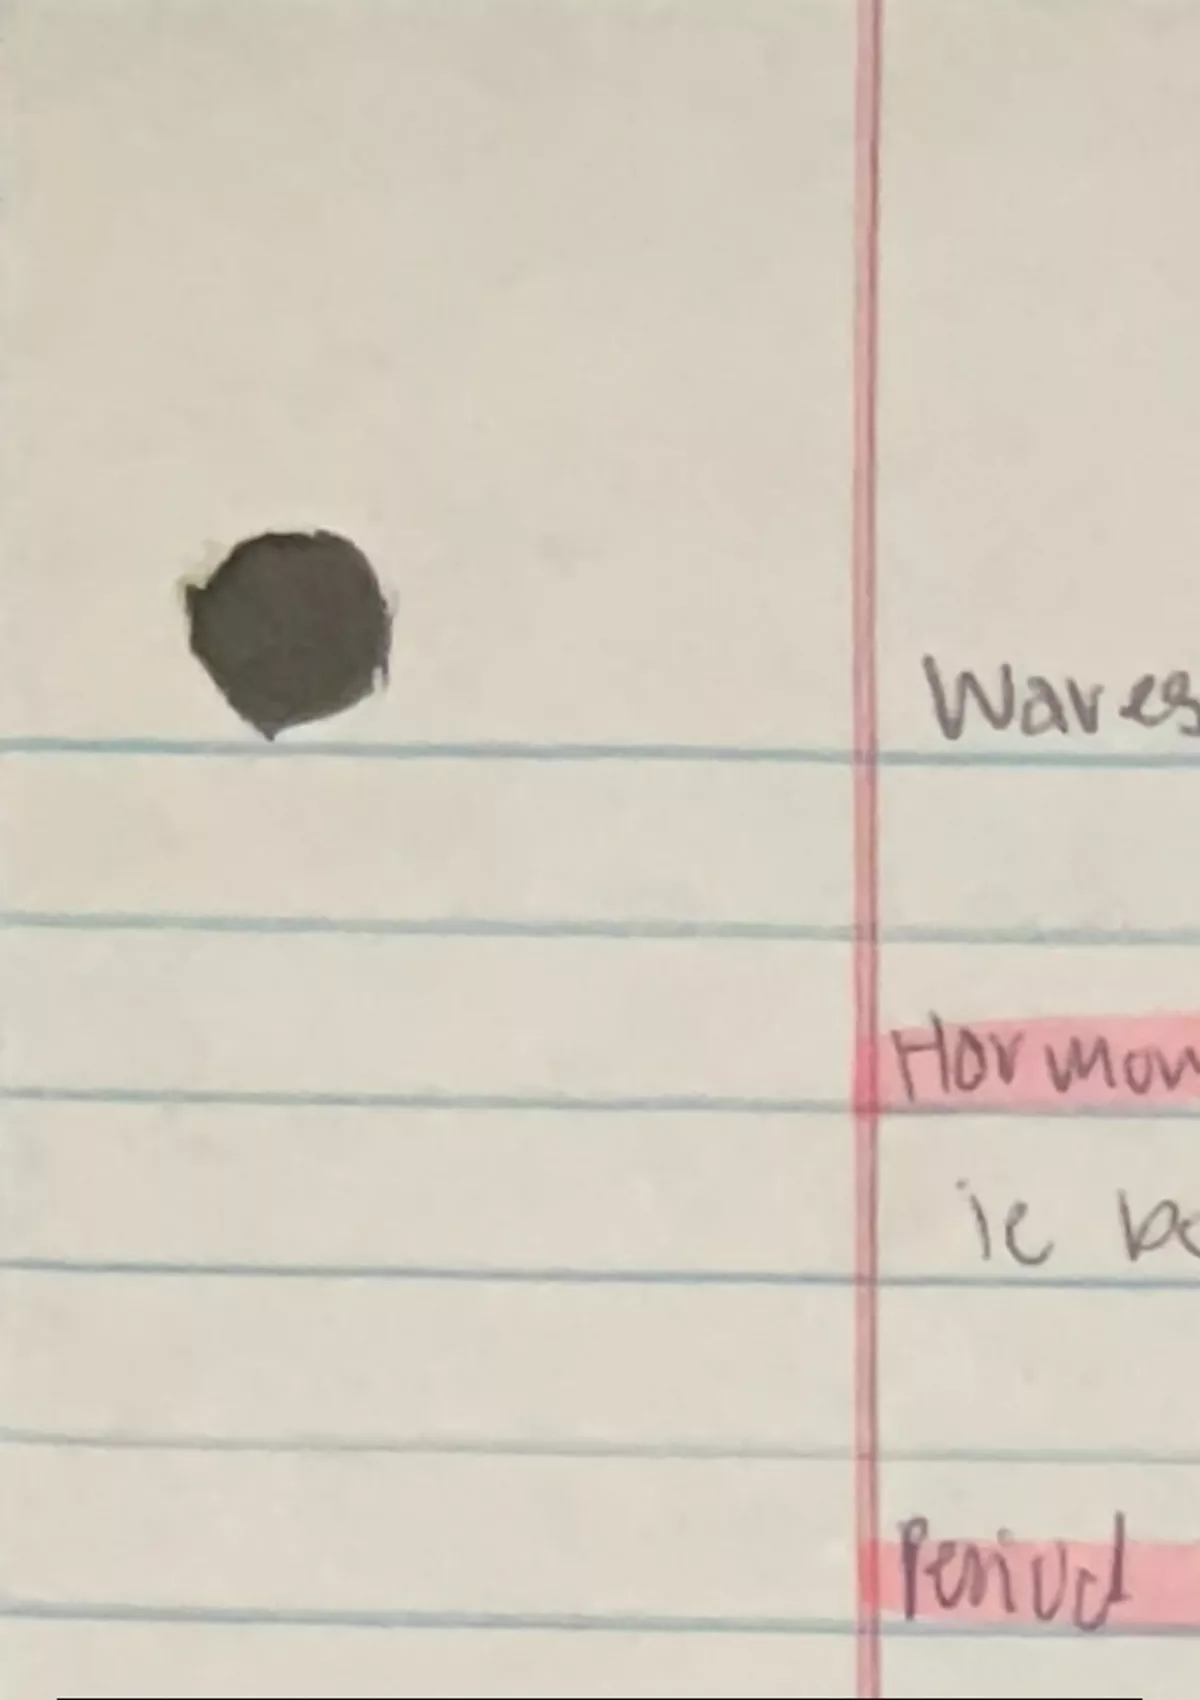 Waves
Hormon
ie be
Period